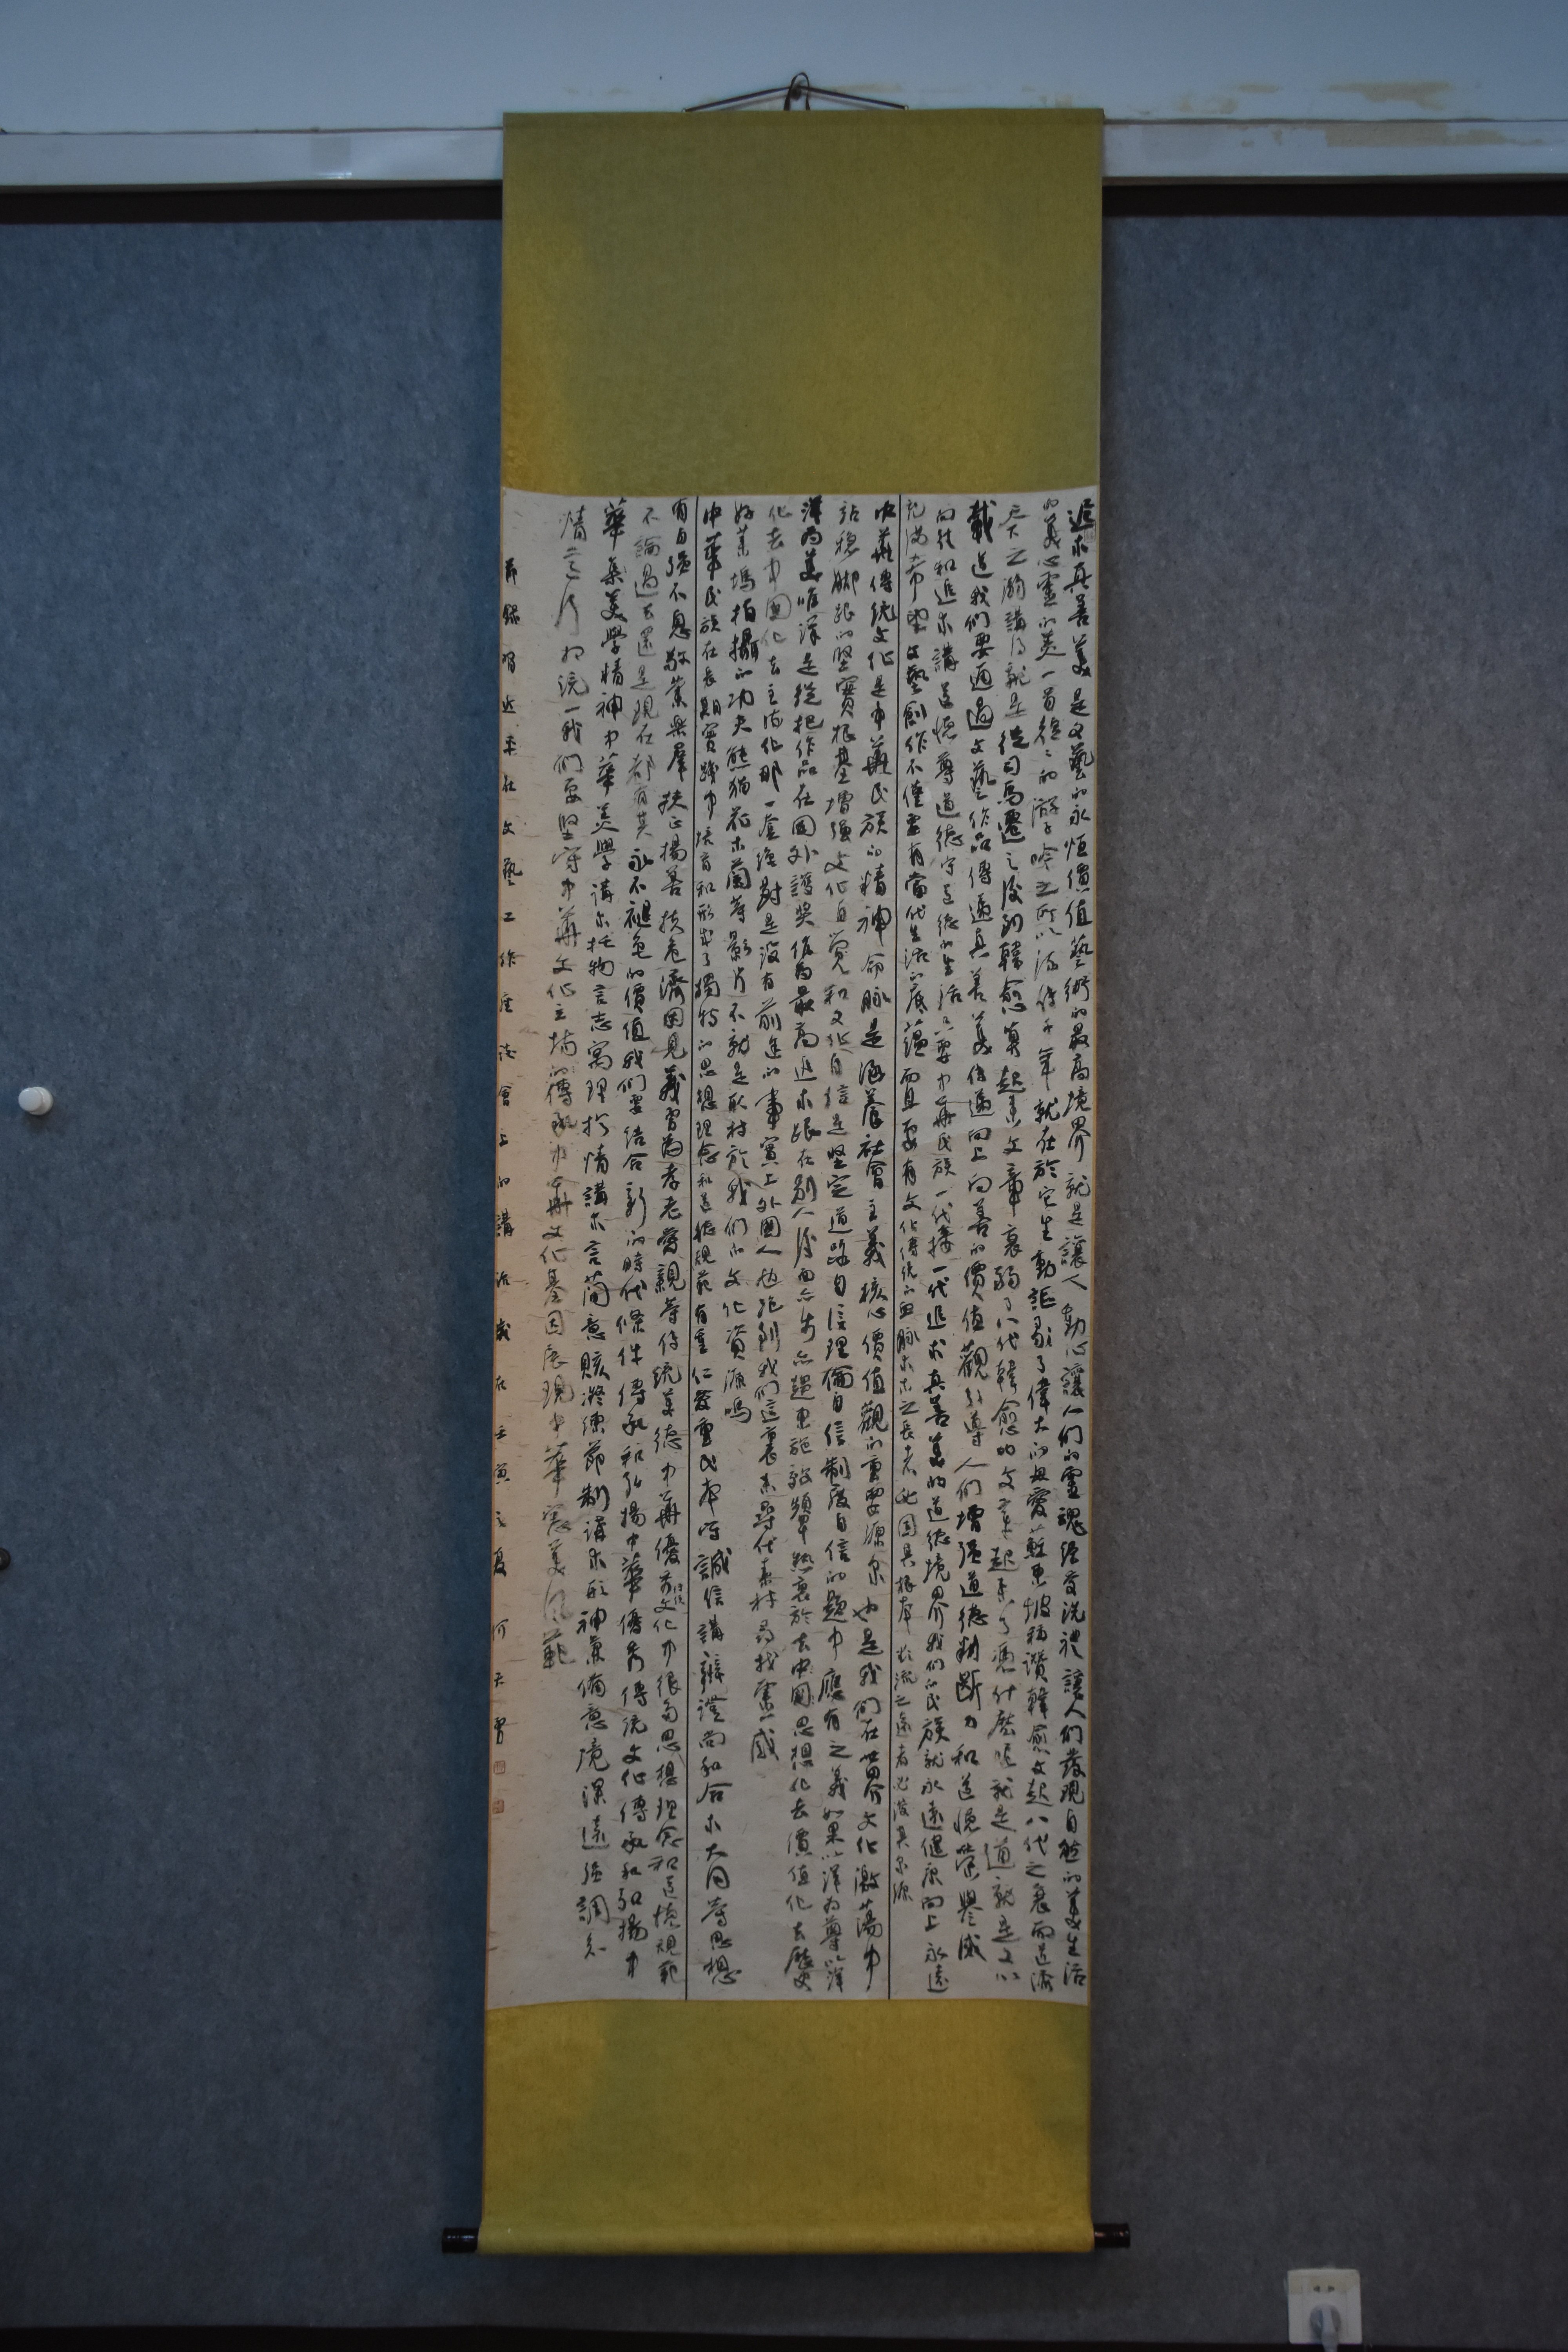 追求真善美是文藝的永恒價值藝術的最高境界就是讓人動心讓人们的靈魂經受洗禮讓人们發現自然的美生活
的美心靈的美一首短短的游子吟之所以流傳千年就在於它生動謳歌了偉大的母愛蘇東坡稱讚韓愈文起八代之衰而道濟
天下之溺講的就是從司馬遷之後到韓愈算起來文章衰弱了八代韓愈的文章起來了憑什麼呢就是道就是文以
載道我们要通過文藝作品傳遞真善美傳遞向上向善的價值觀引導人们增强道德判断力和道德榮譽感
向往和追求講道德尊道德守道德的生活只要中華民族一代接一代追求真善美的道德境界我们的民族就永遠健康向上永遠
充满希望文藝創作不僅要有當代生活的底蕴而且要有文化傳统的血脉求木之長者必固其根本欲流之遠者必浚其泉源
中華傳统文化是中華民族的精神命脉是涵養社會主義核心價值觀的重要源泉也是我们在世界文化激蕩中
站穩脚跟的堅實根基增强文化自觉和文化自信是堅定道路自信理論自信制度自信的题中應有之義如果以洋为尊以洋
洋为美唯洋是從把作品在國外獲奬作为最高追求跟在别人後面亦步亦趨東施效顰热衷於去中國思想化去價值化去歷史
化去中國化去主流化那一套绝對是没有前途的事實上外國人也跑到我们這裏来尋代素材尋找靈感
好莱塢拍攝的功夫熊猫花木蘭等影片不就是取材於我们的文化資源嗎
中華民族在長期實践中培育和形成了獨特的思想理念和道德规範有重仁愛重民本守誠信講辯證尚和合求大同等思想
有自强不息敬業樂群扶正揚善扶危濟困見義勇为孝老爱親等传统美德中華優秀傳统文化中很多思想理念和道德規範
不論過去還是現在都有其永不褪色的價值我们要结合新的時代條件傳承和弘揚中華優秀傳統文化傳承和弘揚中
華美學精神中華美學講求托物言志寓理於情講求言簡意賅凝练節制講求形神兼備意境深遠强調知
情意行相统一我们要堅守中華文化立場傳承中華文化基因展現中華審美风範
節録習近平在文藝工作座談會上的講話歲在壬寅之夏何天勇